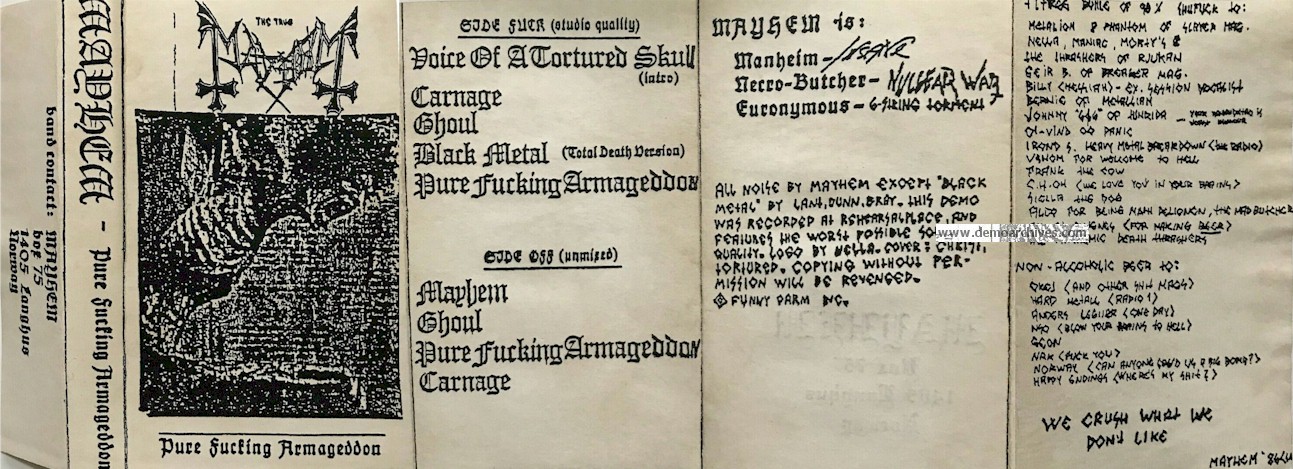 band contact: MAYHEM
box 75
1405 Langhus
Norway
MAYHEM - Pure Fucking Armageddon
THE TRUE
MAYHEM
Pure Fucking Armageddon
SIDE FUCK (studio quality)
Voice Of A Tortured Skull
(intro)
Carnage
Ghoul
Black Metal (Total Death Version)
Pure Fucking Armageddon
SIDE OFF (unmixed)
Mayhem
Ghoul
Pure Fucking Armageddon
Carnage
MAYHEM is:
Manheim -
Necro-Butcher - NUCLEAR WAR
Euronymous - 6-STRING TORMENT
ALL NOISE BY MAYHEM EXCEPT "BLACK
METAL" BY LANT, DUNN, BRAY. THIS DEMO
WAS RECORDED AT REHEARSALPLACE, AND
FEATURES THE WORST POSSIBLE
QUALITY. LOGO BY NELLA. COVER: CHRIST,
TORTURED. COPYING WITHOUT PER-
MISSION WILL BE REVENGED.
FUNNY FARM INC.
www.demoarchives.com
OF 98%
METALION & PHANTOM OF SLAYER MAG.
NELLA, MANIAC, MORTY'S &
THE THRASHERS OF RJUKAN
GEIR B. OF BREAKER MAG.
BILLY (MESSIAH) - EX. SESSION VOCALIST
BERNIE OF METALLIAN
JOHNNY "666" OF
OI-VIND OF PANIC
TROND S. HEAVY METAL BREAKDOWN
VENOM FOR WELCOME TO HELL
FRANK THE COW
C.H. OH (WE LOVE YOU IN YOUR
THE DOG
FOR BEING THE MAD BUTCHER
(FOR MAKING BEER)
DEATH THRASHERS
NON-ALCOHOLIC BEER TO:
(AND OTHER SHIT MAGS)
HARD METALL (RADIO 1)
ANDERS (ONE DAY)
(BLOW YOUR BRAINS TO HELL)
(FUCK YOU)
NORWAY (CAN ANYONE SEND US A BIG BOMB?)
HAPPY ENDINGS (WHERE'S MY SHIT?)
WE CRUSH WHAT WE
DON'T LIKE
MAYHEM '86